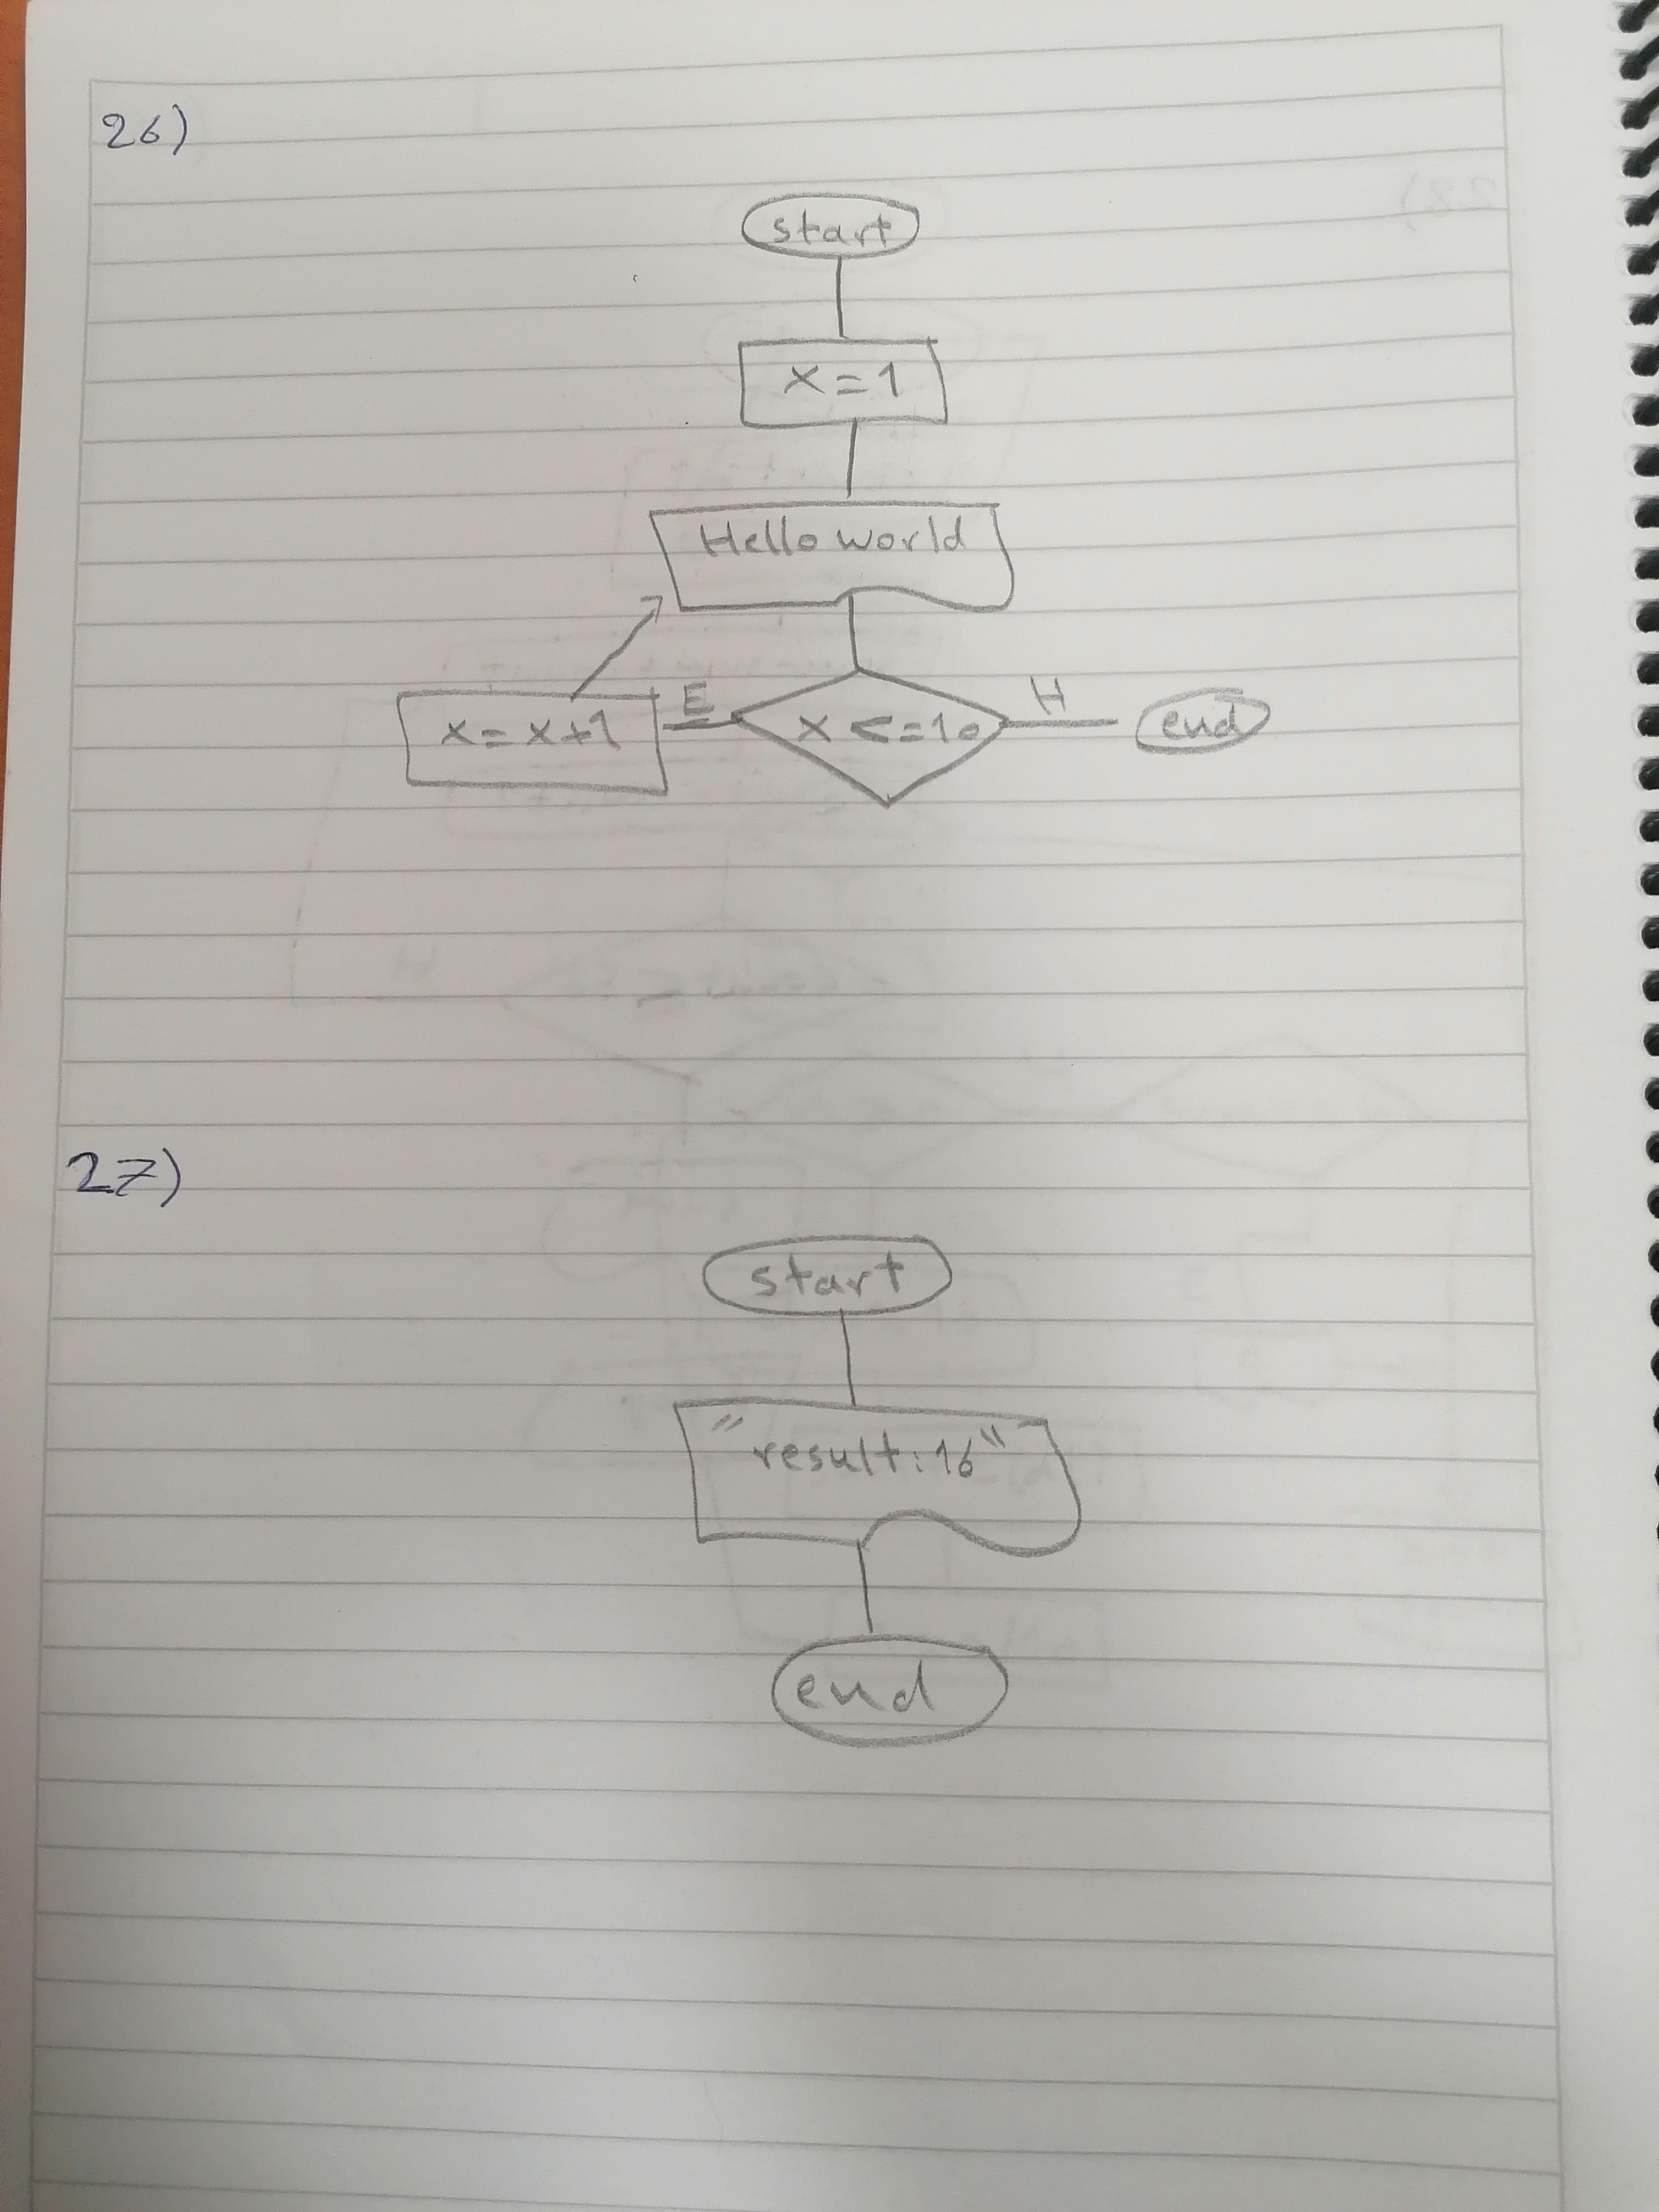 26)
start
x=1
Hello world
x=x+1 E x<=10 H end
27)
start
"result:16"
end